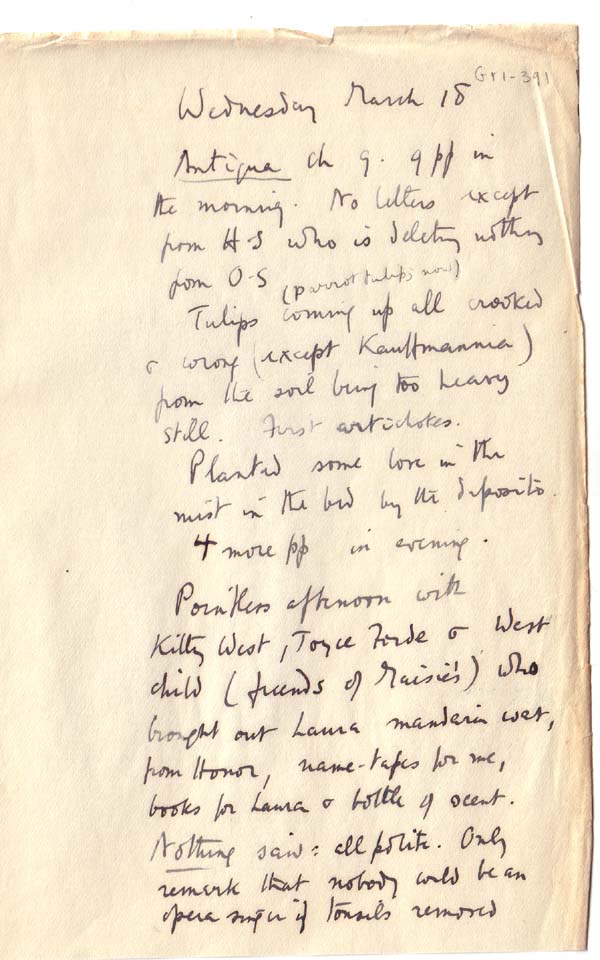 GY1-391
Wednesday March 18
Antigua ch 9. 9 pp in
the morning. No letters except
from H-S who is deleting nothing
from O-S
(parrot tulips now)
Tulips coming up all crooked
& wrong (except Kauffmannia)
from the soil being too heavy
still. First artichokes.
Planted some love in the
mist in the bed by the deposito.
4 more pp in evening.
Pointless afternoon with
Kitty West, Joyce Forde & West
child (friends of Maisie's) who
brought out Laura mandarin coat,
from Honor, name-tapes for me,
books for Laura & bottle of scent.
Nothing said: all polite. Only
remark that nobody could be an
opera singer if tonsils removed